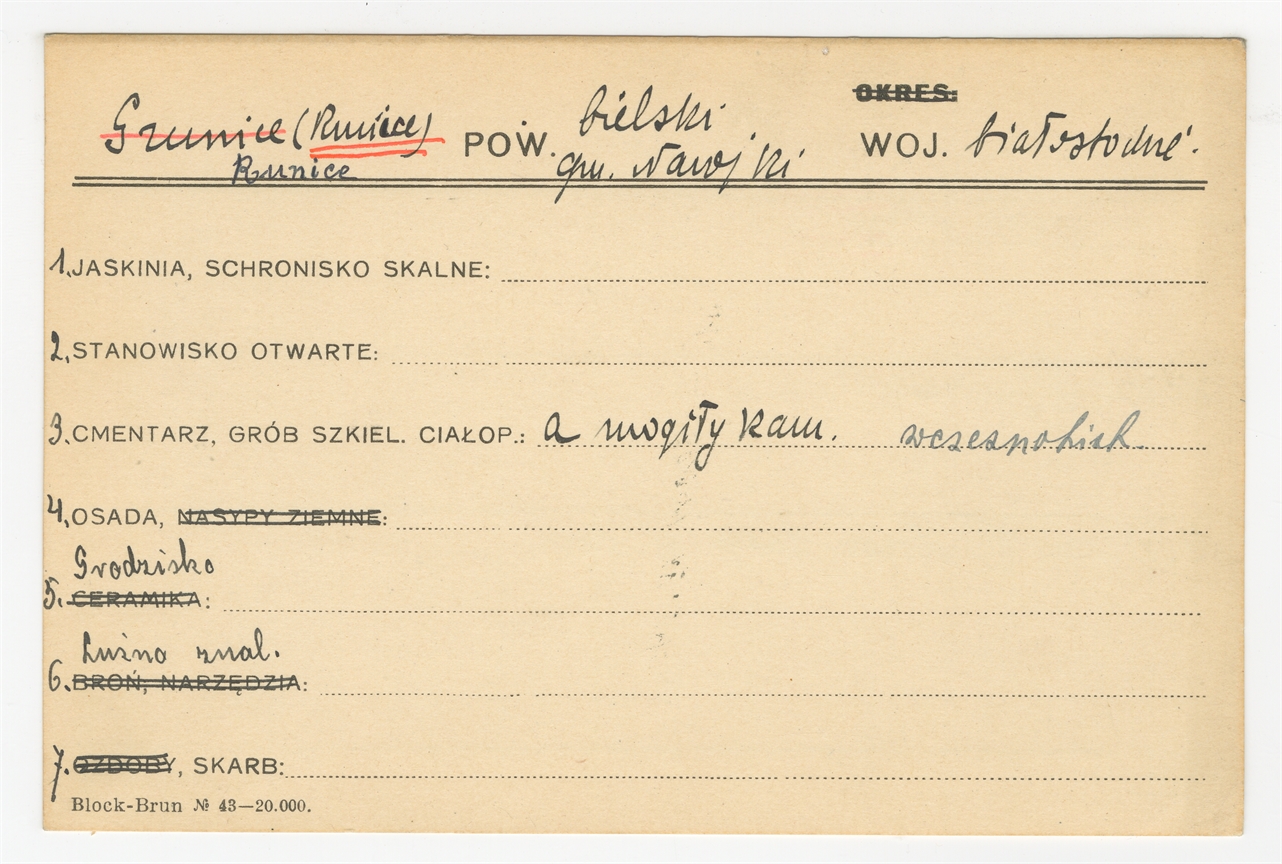 OKRES:
Grunice (Runice) POW. bielski WOJ. białostockie
Runice gm. Nawojki
1. JASKINIA, SCHRONISKO SKALNE:
2. STANOWISKO OTWARTE:
3. CMENTARZ, GRÓB SZKIEL. CIAŁOP.: a mogiły kam. wczesnohist.
4. OSADA, NASYPY ZIEMNE:
Grodzisko
5. CERAMIKA:
Luźno znal.
6. BROŃ, NARZĘDZIA:
7. OZDOBY, SKARB:
Block-Brun № 43—20.000.